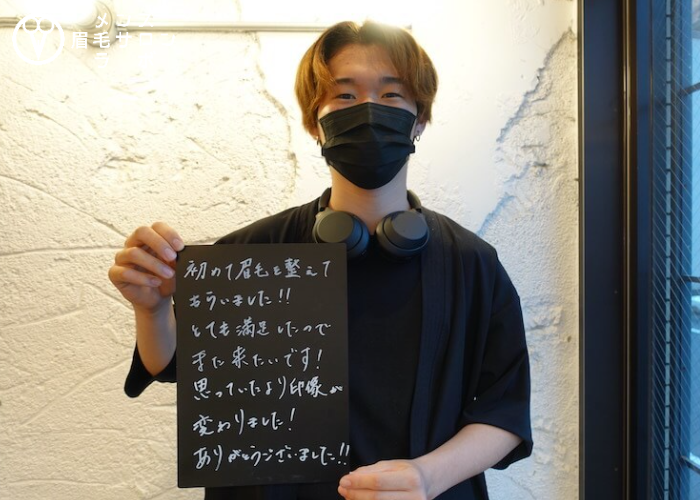 メンズ
眉毛サロン
初めて眉毛を整えて
もらいました!!
とても満足したので
また来たいです!
思っていたより印象が
変わりました!
ありがとうございました!!